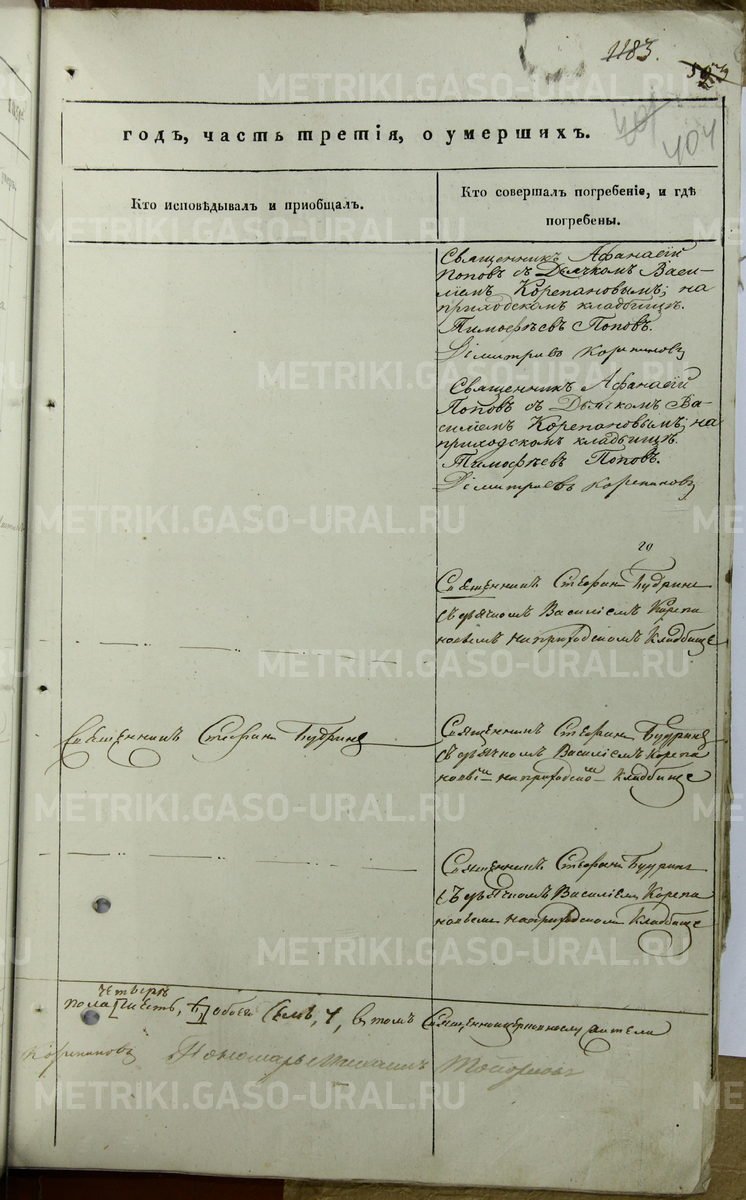 1183.
404
годъ, часть третія, о умершихъ.
Кто исповѣдывалъ и пріобщалъ.
Кто совершалъ погребеніе, и гдѣ
погребены.
Священникъ Афанасій
Поповъ съ Дьячкомъ Васи-
лиемъ Корепановымъ; на
приходскомъ кладбищѣ.
Тимофѣевъ Поповъ.
Димитріевъ Корепановъ
Священникъ Афанасій
Поповъ съ Дьячкомъ Ва-
силиемъ Корепановымъ; на
приходскомъ кладбищѣ.
Тимофѣевъ Поповъ.
Димитріевъ Корепановъ
Священникъ Стефанъ Будринъ
съ дьячкомъ Василіемъ Корепа
новымъ на приходскомъ кладбище
Священникъ Стефанъ Будринъ
Священникъ Стефанъ Будринъ
съ дьячкомъ Василіемъ Корепа
новымъ на приходскомъ кладбище
Священникъ Стефанъ Будринъ
съ дьячкомъ Василіемъ Корепа
новымъ на приходскомъ кладбище
четыре
пола шесть, обоего семь, 7, въ томъ
Корепановъ Пономарь Михаилъ
METRIKI.GASO-URAL.RU